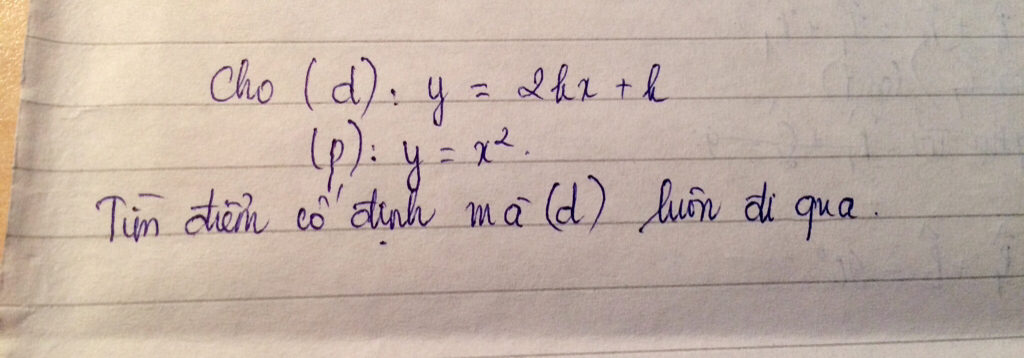 Cho (d): y = 2kx + k
(p): y = x².
Tìm điểm cố định mà (d) luôn đi qua.